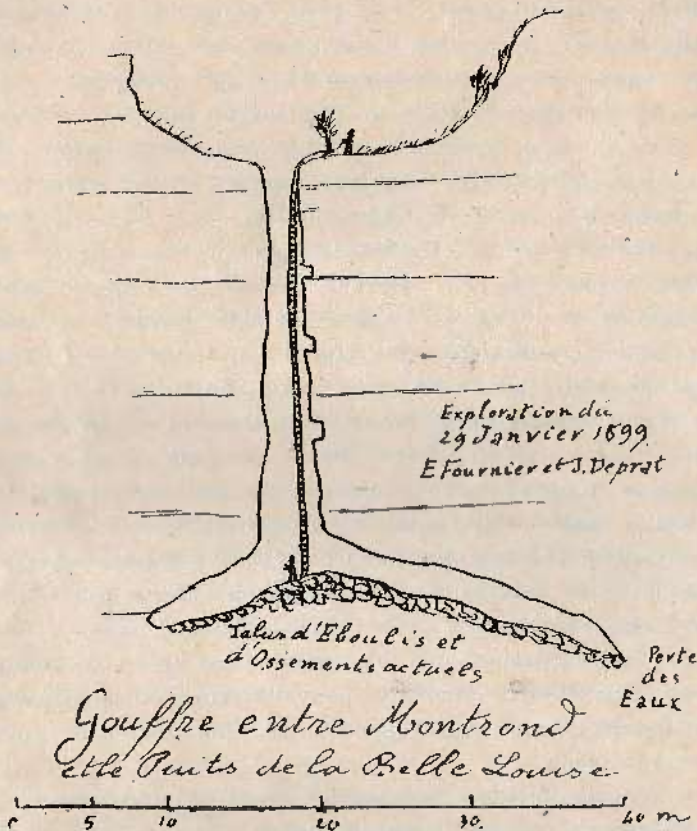 Exploration du
29 Janvier 1899.
E Fournier et J. Deprat
Talus d'Eboulis et
d'Ossements actuels
Perte
des
Eaux
Gouffre entre Montrond
et le Puits de la Belle Louise
0 5 10 20 30. 40 m